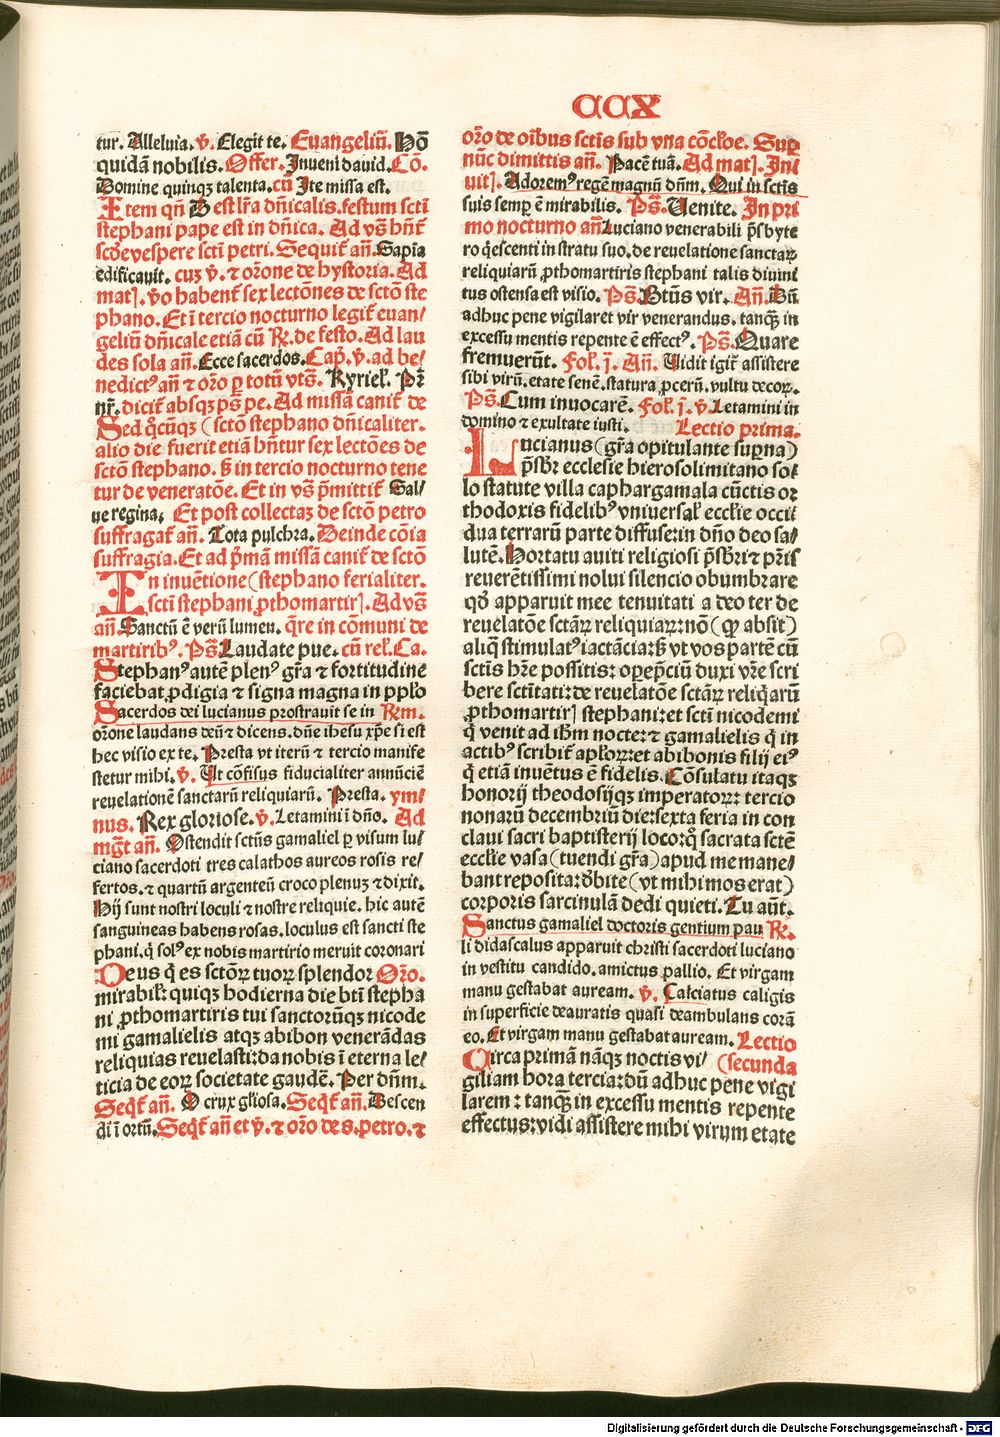 CCX
tur. Alleluia. v̄. Elegit te. Euangeliū. Hō
quidā nobilis. Offer. Inueni dauid. Cō.
Domine quinqꝫ talenta. cū Ite missa est.
Item qn̄ B est lr̄a dn̄icalis. festum sctī
stephani pape est in dn̄ica. Ad vs̄ hn̄t̄
scd̄e vespere sctī petri. Sequit̄ an̄. Sapia
edificauit. cuꝫ v̄. ⁊ or̄one de hystoria. Ad
matꝭ. v̄o habent̄ sex lectōnes de sctō ste
phano. Et ī tercio nocturno legit̄ euan⸗
geliū dn̄icale etiā cū R̄. de festo. Ad lau
des sola an̄. Ecce sacerdos. Cap̄. v̄. ad be⸗
nedictꝰ an̄ ⁊ or̄o ꝑ totū vts̄. Kyriel̄. Pr̄
nr̄. dicit̄ absqꝫ ps̄ pe. Ad missā canit̄ de
Sed qͦcūqꝫ (sctō stephano dn̄icaliter.
alio die fuerit etiā hn̄tur sex lectōes de
sctō stephano. ꝫ in tercio nocturno tene
tur de veneratōe. Et in vs̄ p̄mittit̄ Sal⸗
ue regina; Et post collectaꝫ de sctō petro
suffragat̄ an̄. Tota pulchra. Deinde cōia
suffragia. Et ad p̄mā missā canit̄ de sctō
In inuētione (stephano ferialiter.
sctī stephani ꝓthomartirꝭ. Ad vs̄
an̄. Sanctū ē verū lumen. qr̄e in cōmuni de
martiribꝰ. Ps̄. Laudate pue. cū rel̄. Ca.
Stephanꝰ autē plenꝰ gr̄a ⁊ fortitudine
faciebat ꝓdigia ⁊ signa magna in pplo
Sacerdos dei lucianus prostrauit se in R̄m.
or̄one laudans deū ⁊ dicens. dn̄e ihesu xp̄e si est
hec visio ex te. Presta vt iterū ⁊ tercio manife
stetur mihi. v̄. Ut cōfisus fiducialiter annūciē
reuelationē sanctarū reliquiarū. Presta. ym⸗
nus. Rex gloriose. v̄. Letamini ī dn̄o. Ad
mḡt an̄. Ostendit sctūs gamaliel ꝑ visum lu⸗
ciano sacerdoti tres calathos aureos rosis re⸗
fertos. ⁊ quartū argenteū croco plenuꝫ ⁊ dixit.
Hij sunt nostri loculi ⁊ nostre reliquie. hic autē
sanguineas habens rosas. loculus est sancti ste
phani. q̄ solꝰ ex nobis martirio meruit coronari
Deus q̄ es sctōꝝ tuoꝝ splendor Or̄o.
mirabil̄: quiqꝫ hodierna die btī stepha
ni ꝓthomartiris tui sanctorūqꝫ nicode
mi gamalielis atqꝫ abibon venerādas
reliquias reuelasti: da nobis ī eterna le⸗
ticia de eoꝝ societate gaudē. Per dn̄m.
Seqt̄ an̄. O crux gl̄iosa. Seqt̄ an̄. Descen
di ī ortū. Seqt̄ an̄ et v̄. ⁊ or̄o de s. petro. ⁊
or̄o de oībus sctīs sub vna cōcl̄oe. Suꝑ
nūc dimittis an̄. Pacē tuā. Ad matꝭ. In⸗
uitꝭ. Adoremꝰ regē magnū dn̄m. Qui in sctīs
suis semꝑ ē mirabilis. Ps̄. Uenite. In pri
mo nocturno an̄ Luciano venerabili p̄sbyte
ro q̄escenti in stratu suo. de reuelatione sanctaꝝ
reliquiarū ꝓthomartiris stephani talis diuini
tus ostensa est visio. Ps̄. Btūs vir. An̄. Dū
adhuc pene vigilaret vir venerandus. tanqꝫ in
excessu mentis repente ē effectꝰ. Ps̄. Quare
fremuerūt. Fol̄. j̄. An̄. Uidit igit̄ assistere
sibi virū. etate senē. statura ꝓcerū. vultu decoꝝ.
Ps̄. Cum inuocarē. Fol̄. j̄. v̄. Letamini in
domino ⁊ exultate iusti. Lectio prima.
Lucianus (gr̄a opitulante suꝑna)
p̄sbr̄ ecclesie hierosolimitano so⸗
lo statute villa caphargamala cūctis or
thodoxis fidelibꝰ vniuersal̄ eccl̄ie occii
dua terrarū parte diffuse: in dn̄o deo sa⸗
lutē. Hortatu auiti religiosi p̄sbr̄i ⁊ pr̄is
reuerētissimi nolui silencio obumbrare
qd̄ apparuit mee tenuitati a deo ter de
reuelatōe sctāꝝ reliquiaꝝ: nō (qꝫ absit)
aliqͣ stimulatꝰ iactācia: ꝫ vt vos partē cū
sctīs hr̄e possitis: oꝑep̄ciū duxi vr̄e scri
bere sctītati: de reuelatōe sctāꝝ reliqarū
ꝓthomartirꝭ stephani: et sctī nicodemi
q̄ venit ad ih̄m nocte: ⁊ gamalielis q̄ in
actibꝰ scribit̄ apl̄oꝝ: et abibonis filij eiꝰ
q̄ etiā inuētus ē fidelis. Cōsulatu itaqꝫ
honorij theodosijqꝫ imperatoꝝ: tercio
nonarū decembriū die: sexta feria in con
claui sacri baptisterij loco: qͦ sacrata sctē
eccl̄ie vasa (tuendi gr̄a) apud me mane⸗
bant reposita: d̄bite (vt mihi mos erat)
corporis sarcinulā dedi quieti. Tu aūt.
Sanctus gamaliel doctoris gentium pau R̄.
li didascalus apparuit christi sacerdoti luciano
in vestitu candido. amictus pallio. Et virgam
manu gestabat auream. v̄. Calciatus caligis
in superficie deauratis quasi deambulans corā
eo. Et virgam manu gestabat auream. Lectio
Circa primā nāqꝫ noctis vi⸗ (secunda
giliam hora tercia: dū adhuc pene vigi
larem: tanqꝫ in excessu mentis repente
effectus: vidi assistere mihi virum etate
Digitalisierung gefördert durch die Deutsche Forschungsgemeinschaft - DFG